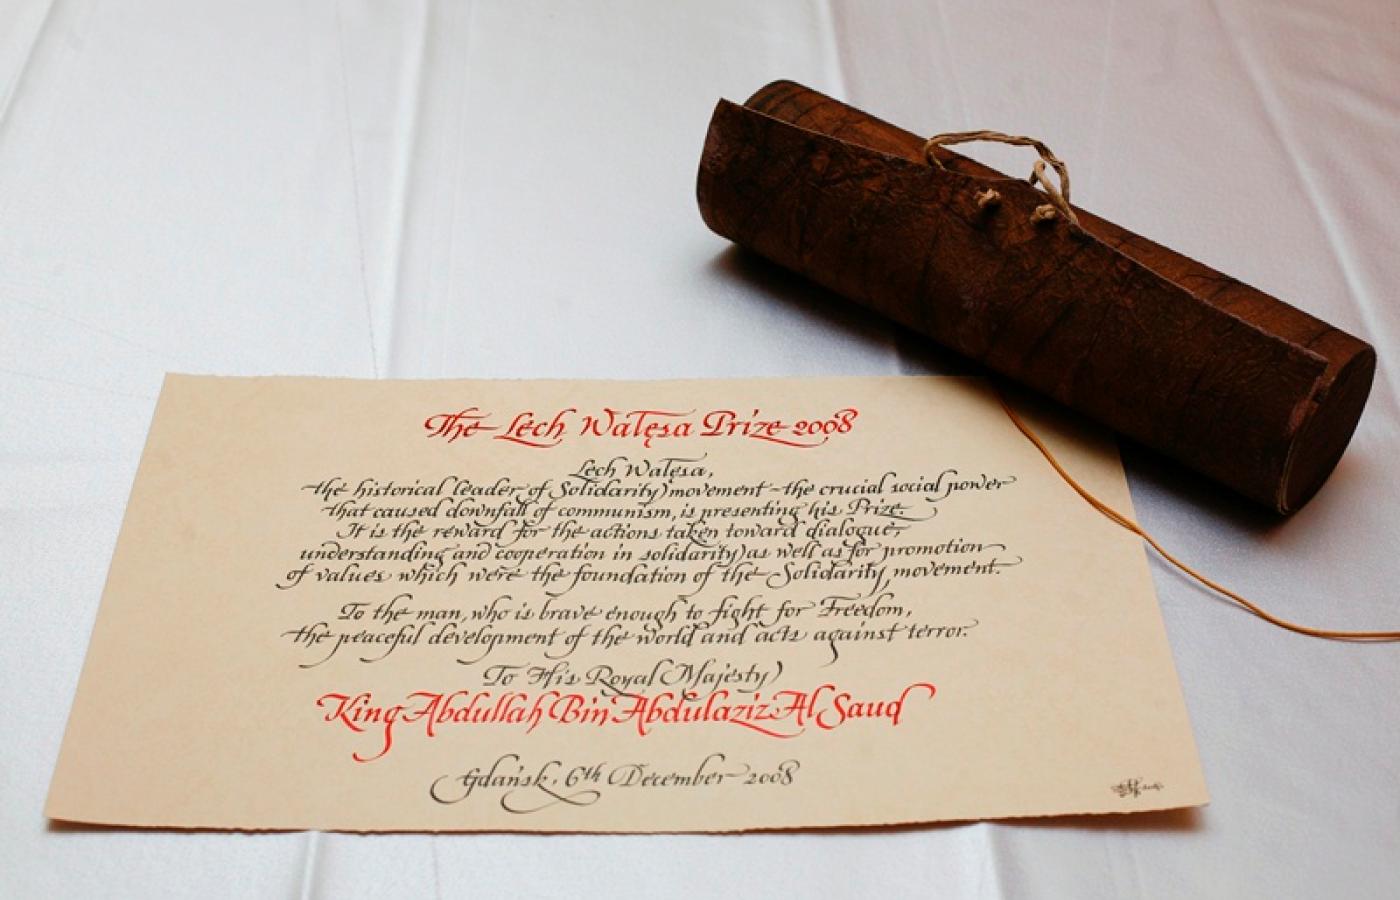 The Lech Wałęsa Prize 2008
Lech Wałęsa,
the historical leader of Solidarity movement - the crucial social power
that caused downfall of communism, is presenting his Prize.
It is the reward for the actions taken toward dialogue,
understanding and cooperation in solidarity as well as for promotion
of values which were the foundation of the Solidarity movement.
To the man, who is brave enough to fight for Freedom,
the peaceful development of the world and acts against terror.
To His Royal Majesty
King Abdullah Bin Abdulaziz Al Saud
Gdańsk, 6th December 2008